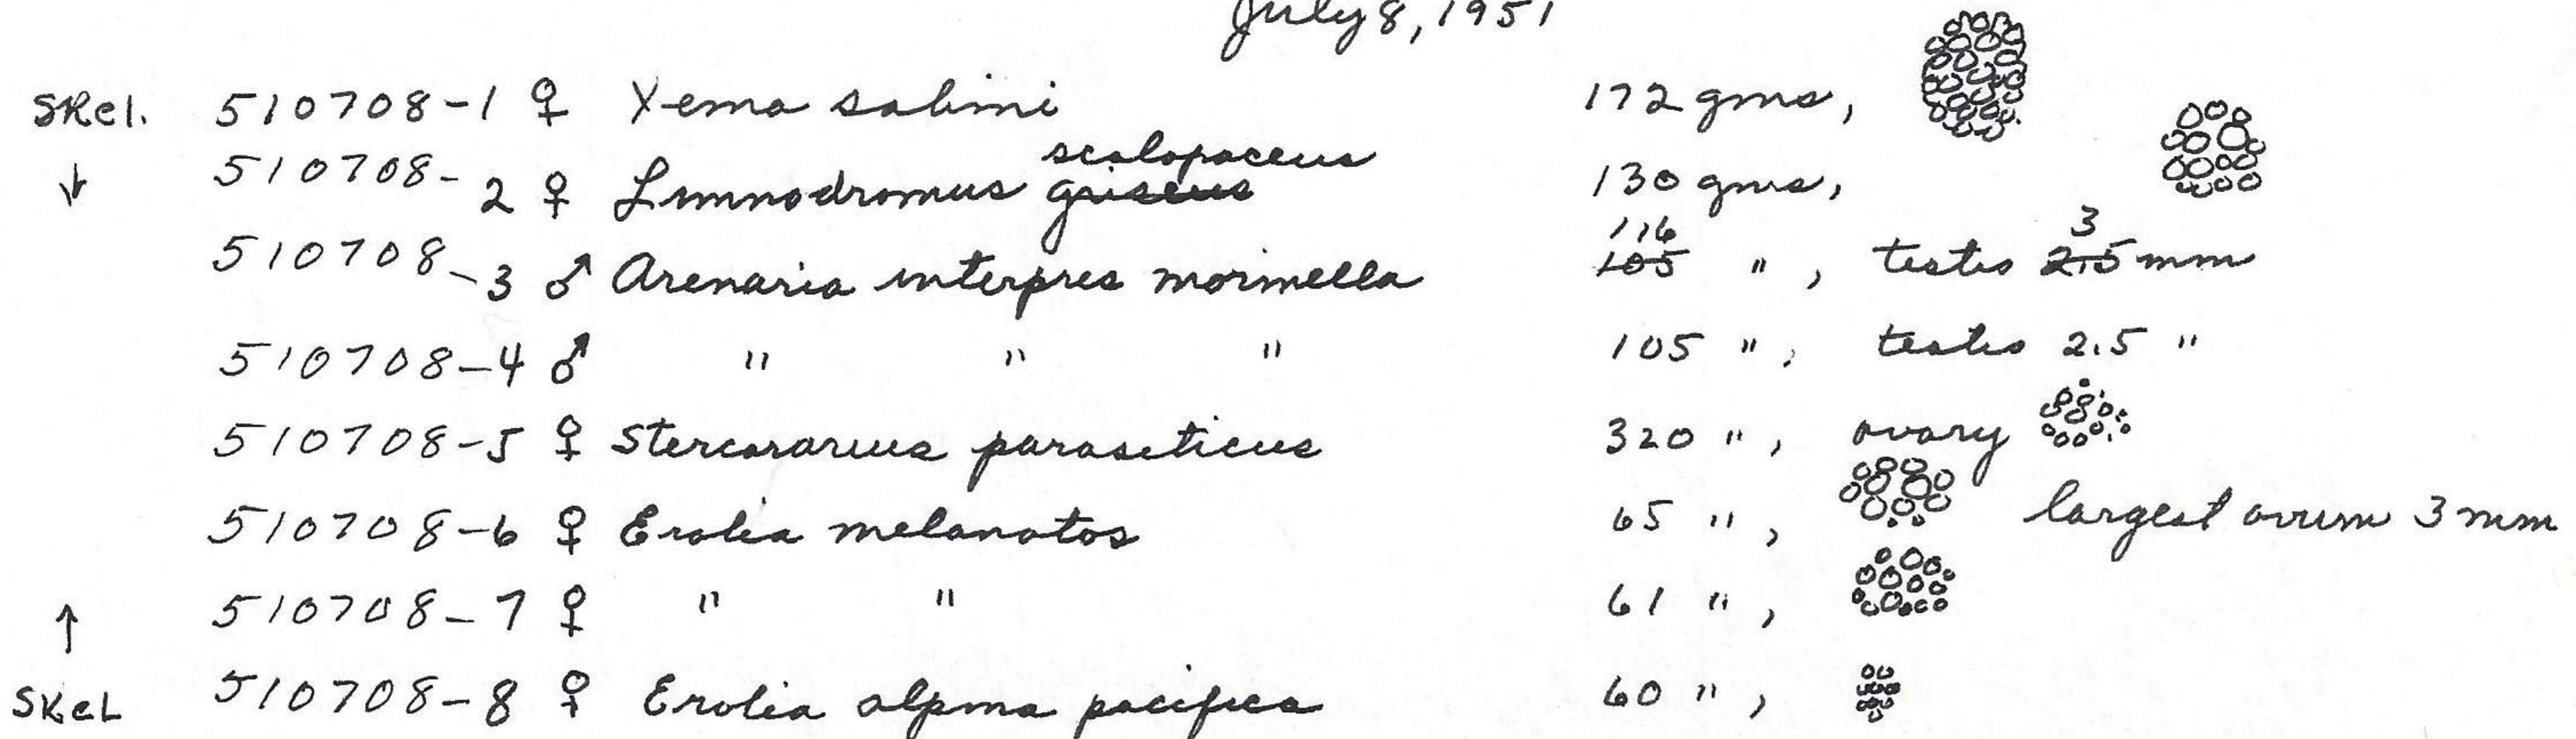 July 8, 1951
Skel. 510708-1 ♀ Xema sabini 172 gms,
↓ 510708-2 ♀ Limnodromus griseus scolopaceus 130 gms,
510708-3 ♂ Arenaria interpres morinella 105 116 " , testis 2.5 3 mm
510708-4 ♂ " " " 105 " , testis 2.5 "
510708-5 ♀ Stercorarius parasiticus 320 " , ovary
510708-6 ♀ Erolia melanotos 65 " , largest ovum 3 mm
↑ 510708-7 ♀ " " 61 " ,
Skel 510708-8 ♀ Erolia alpina pacifica 60 " ,